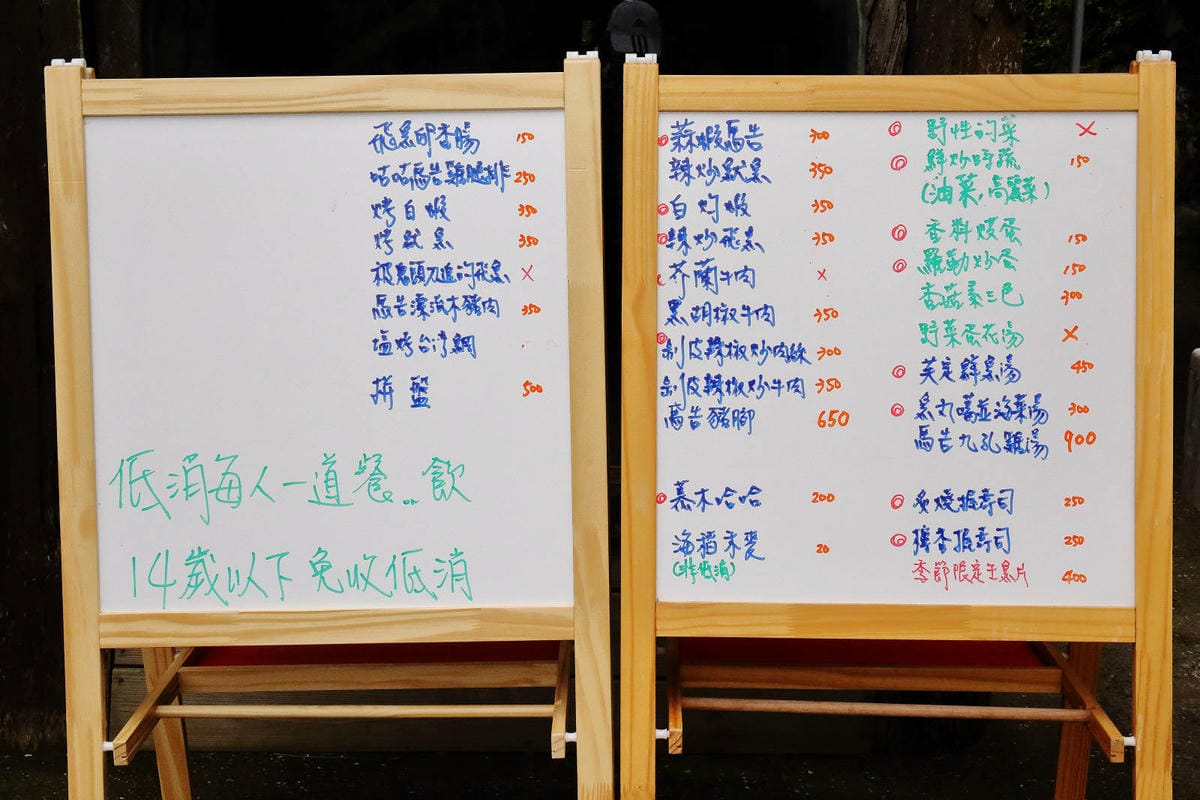 飛魚卵香腸 150
咕咕馬告雞腿排 250
烤白蝦 350
烤魷魚 350
被鬼頭刀追的飛魚 X
馬告漂流木豬肉 350
塩烤台湾鯛
拼盤 500
低消每人一道餐..飲
14歲以下免收低消
◎蒜蝦馬告 300
辣炒魷魚 350
◎白灼蝦 350
◎辣炒飛魚 350
芥蘭牛肉 X
黑胡椒牛肉 350
◎剝皮辣椒炒肉絲 300
剝皮辣椒炒牛肉 350
馬告豬腳 650
◎慕木哈哈 200
海稻禾麥 20
(非低消)
◎野性的菜 X
◎鮮炒時蔬 150
(油菜,高麗菜)
◎香料烘蛋 150
◎羅勒炒蛋 150
香菇素三色 300
野菜蛋花湯 X
◎芙定鮮魚湯 450
◎魚丸噶並海菜湯 300
馬告九孔雞湯 900
◎炙燒握壽司 250
◎檸香握壽司 250
季節限定生魚片 400